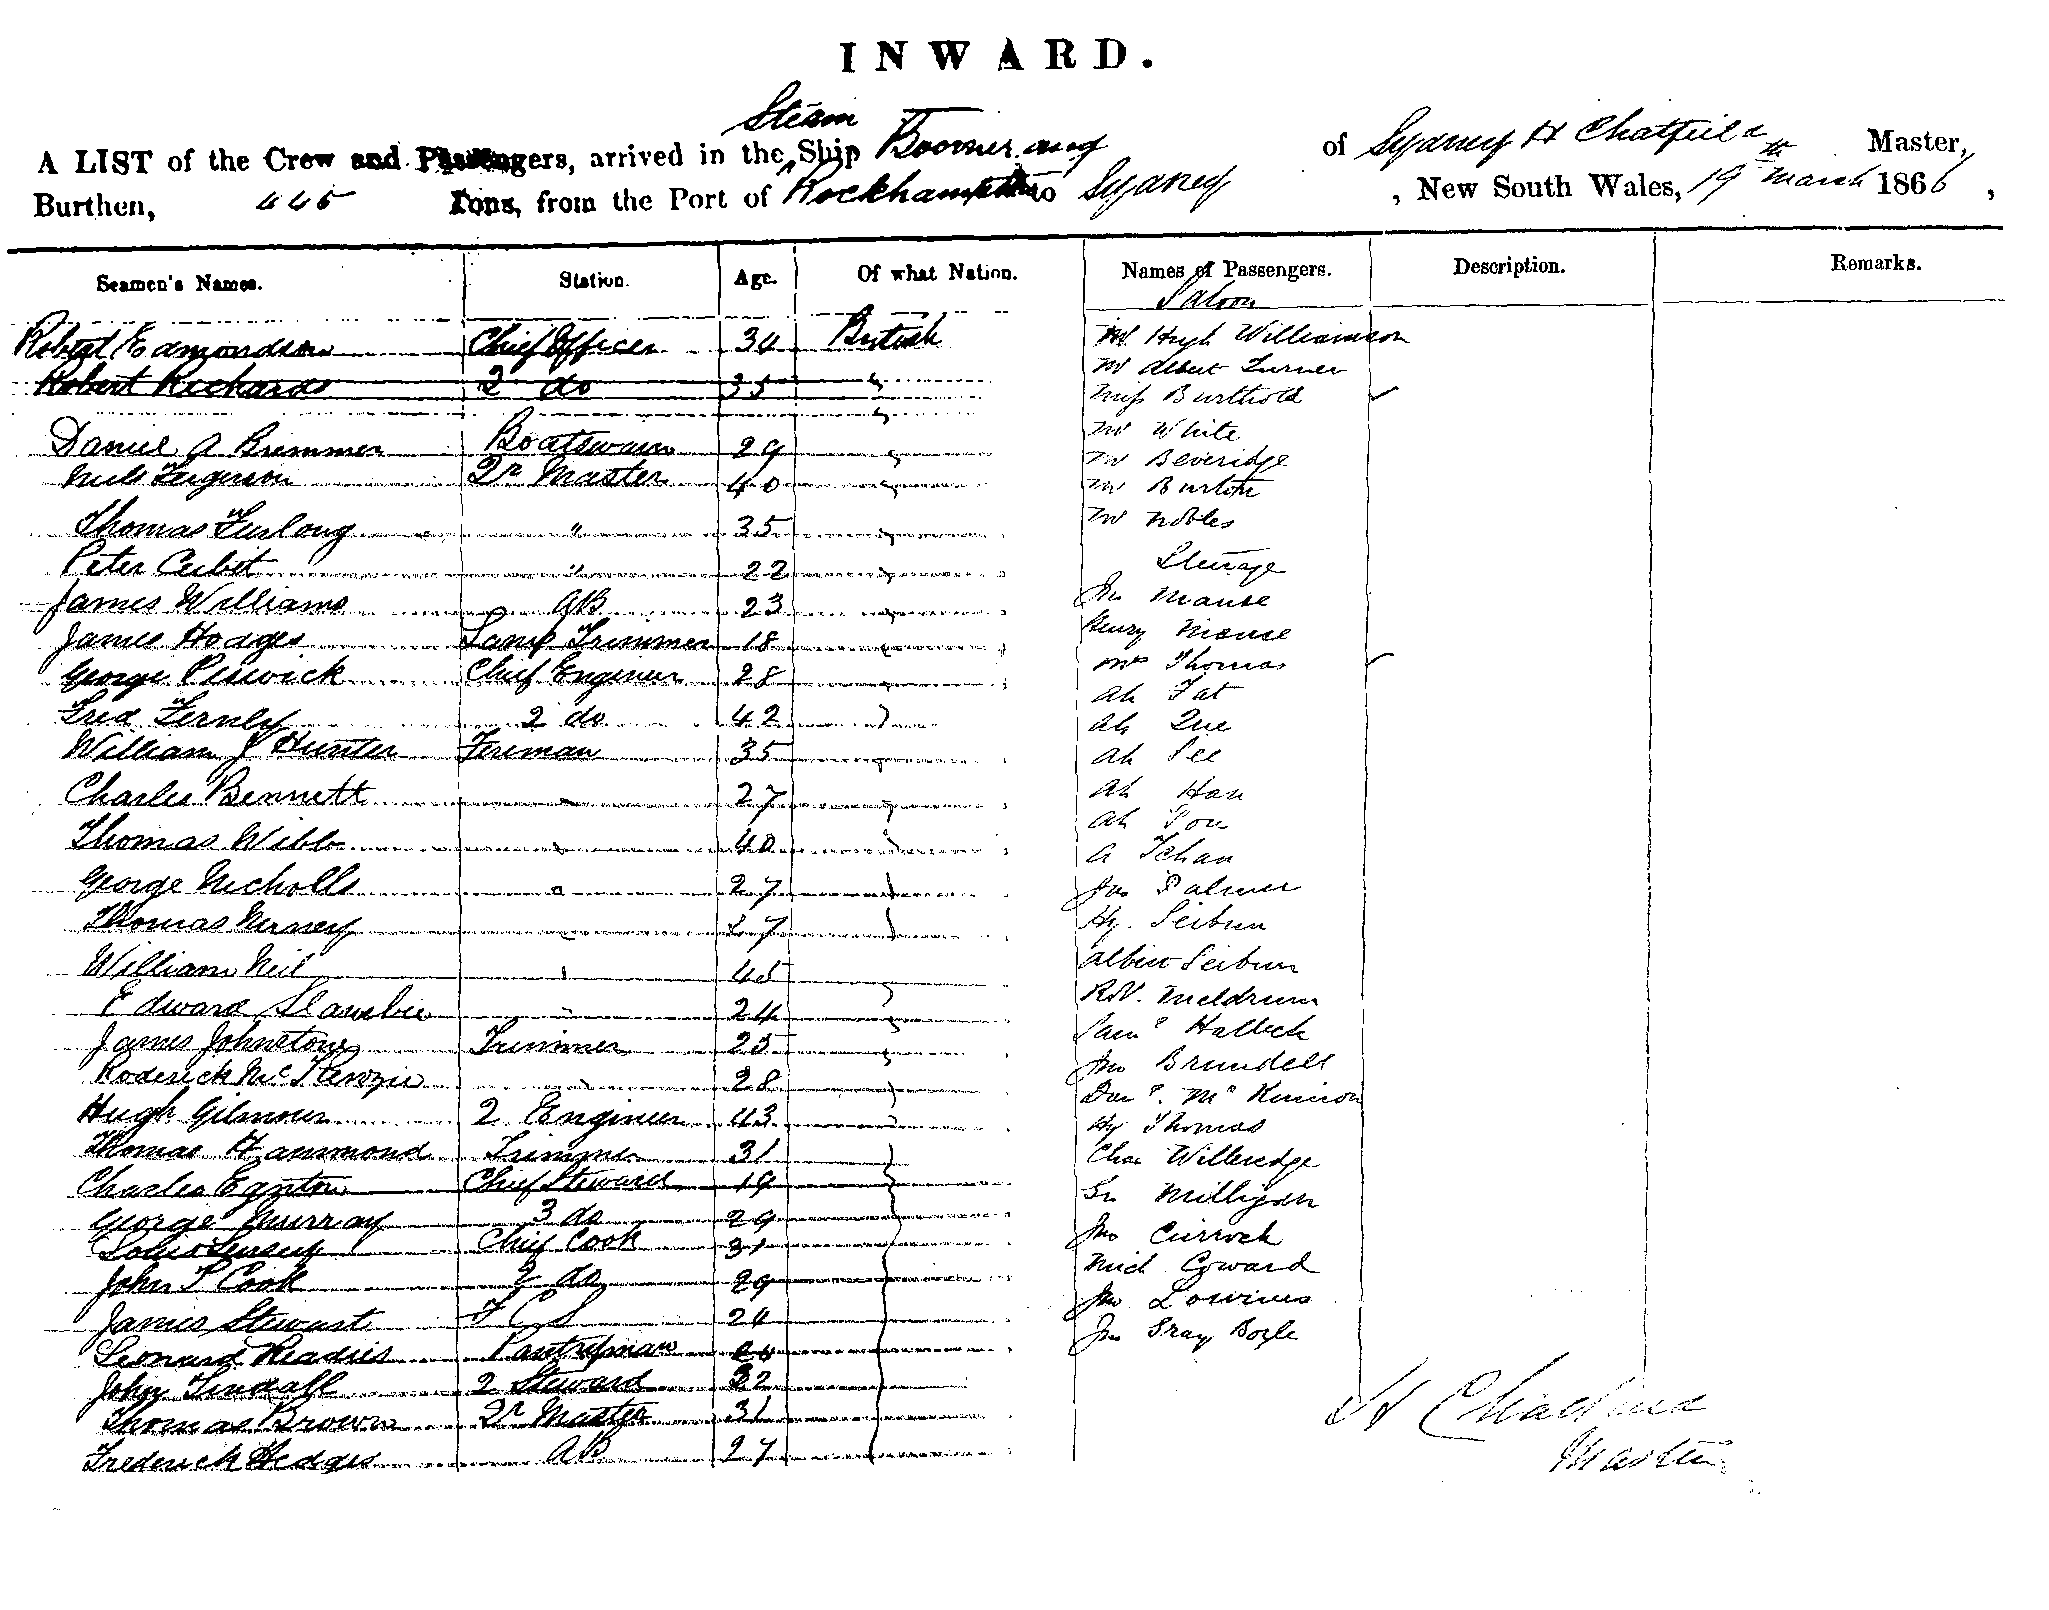 INWARD.
Steam
A LIST of the Crew and Passengers, arrived in the Ship Boomerang of Sydney H Chatfield Master,
Burthen, 445 Tons, from the Port of Rockhampton to Sydney, New South Wales, 19th March 1866,
Seamen's Names. Station. Age. Of what Nation. Names of Passengers. Description. Remarks.
Saloon
Robert Edmondson Chief Officer 34 British Mr Hugh Williamson
Robert Richards 2 do 35 " Mr Albert Turner
" Miss Burthold
Mr White
Daniel A Bremmer Boatswain 29 " Mr Beveridge
Ferguson Qr Master 40 " Mr Burton
Mr Nobles
Thomas Furlong " 35 "
Peter Cubet " 22 " Steerage
James Williams AB 23 " Jno Manse
James Hodges Lamp Trimmer 18 " Henry Manse
George Chief Engineer 28 " Mrs Thomas
Ah Fat
Fred Fernley 2 do 42 " Ah Que
William J Hunter Fireman 35 " Ah See
Charles Bennett " 27 " Ah Han
Ah Pou
Thomas Webb " 40 " A Tchan
George Nicholls " 27 " Jno Palmer
Thomas " 27 " Hy. Seibun
William Neil " 45 " Albert Seibun
Edward " 24 " Meldrum
James Johnstone Trimmer 25 " Saml Halleck
Roderick McKenzie " 28 " Jno Brundell
Hugh Gilmour 2 Engineer 43 " Danl. Mc
Hy Thomas
Thomas Hammond Trimmer 31 Chas Willeredge
Charles Eganton Chief Steward 19 Milligan
George Murray 3 do 29
Louis Chief Cook 31 Jno Currock
John T Cook 2 do 29 Mich Coward
James Stewart F C S 24 Jno
Leonard Pantryman 24 Jno Gray Bogle
John Tindall 2 Steward 22
Thomas Brown Qr Master 31 H Chatfield
Frederick Hedges AB 27 Master